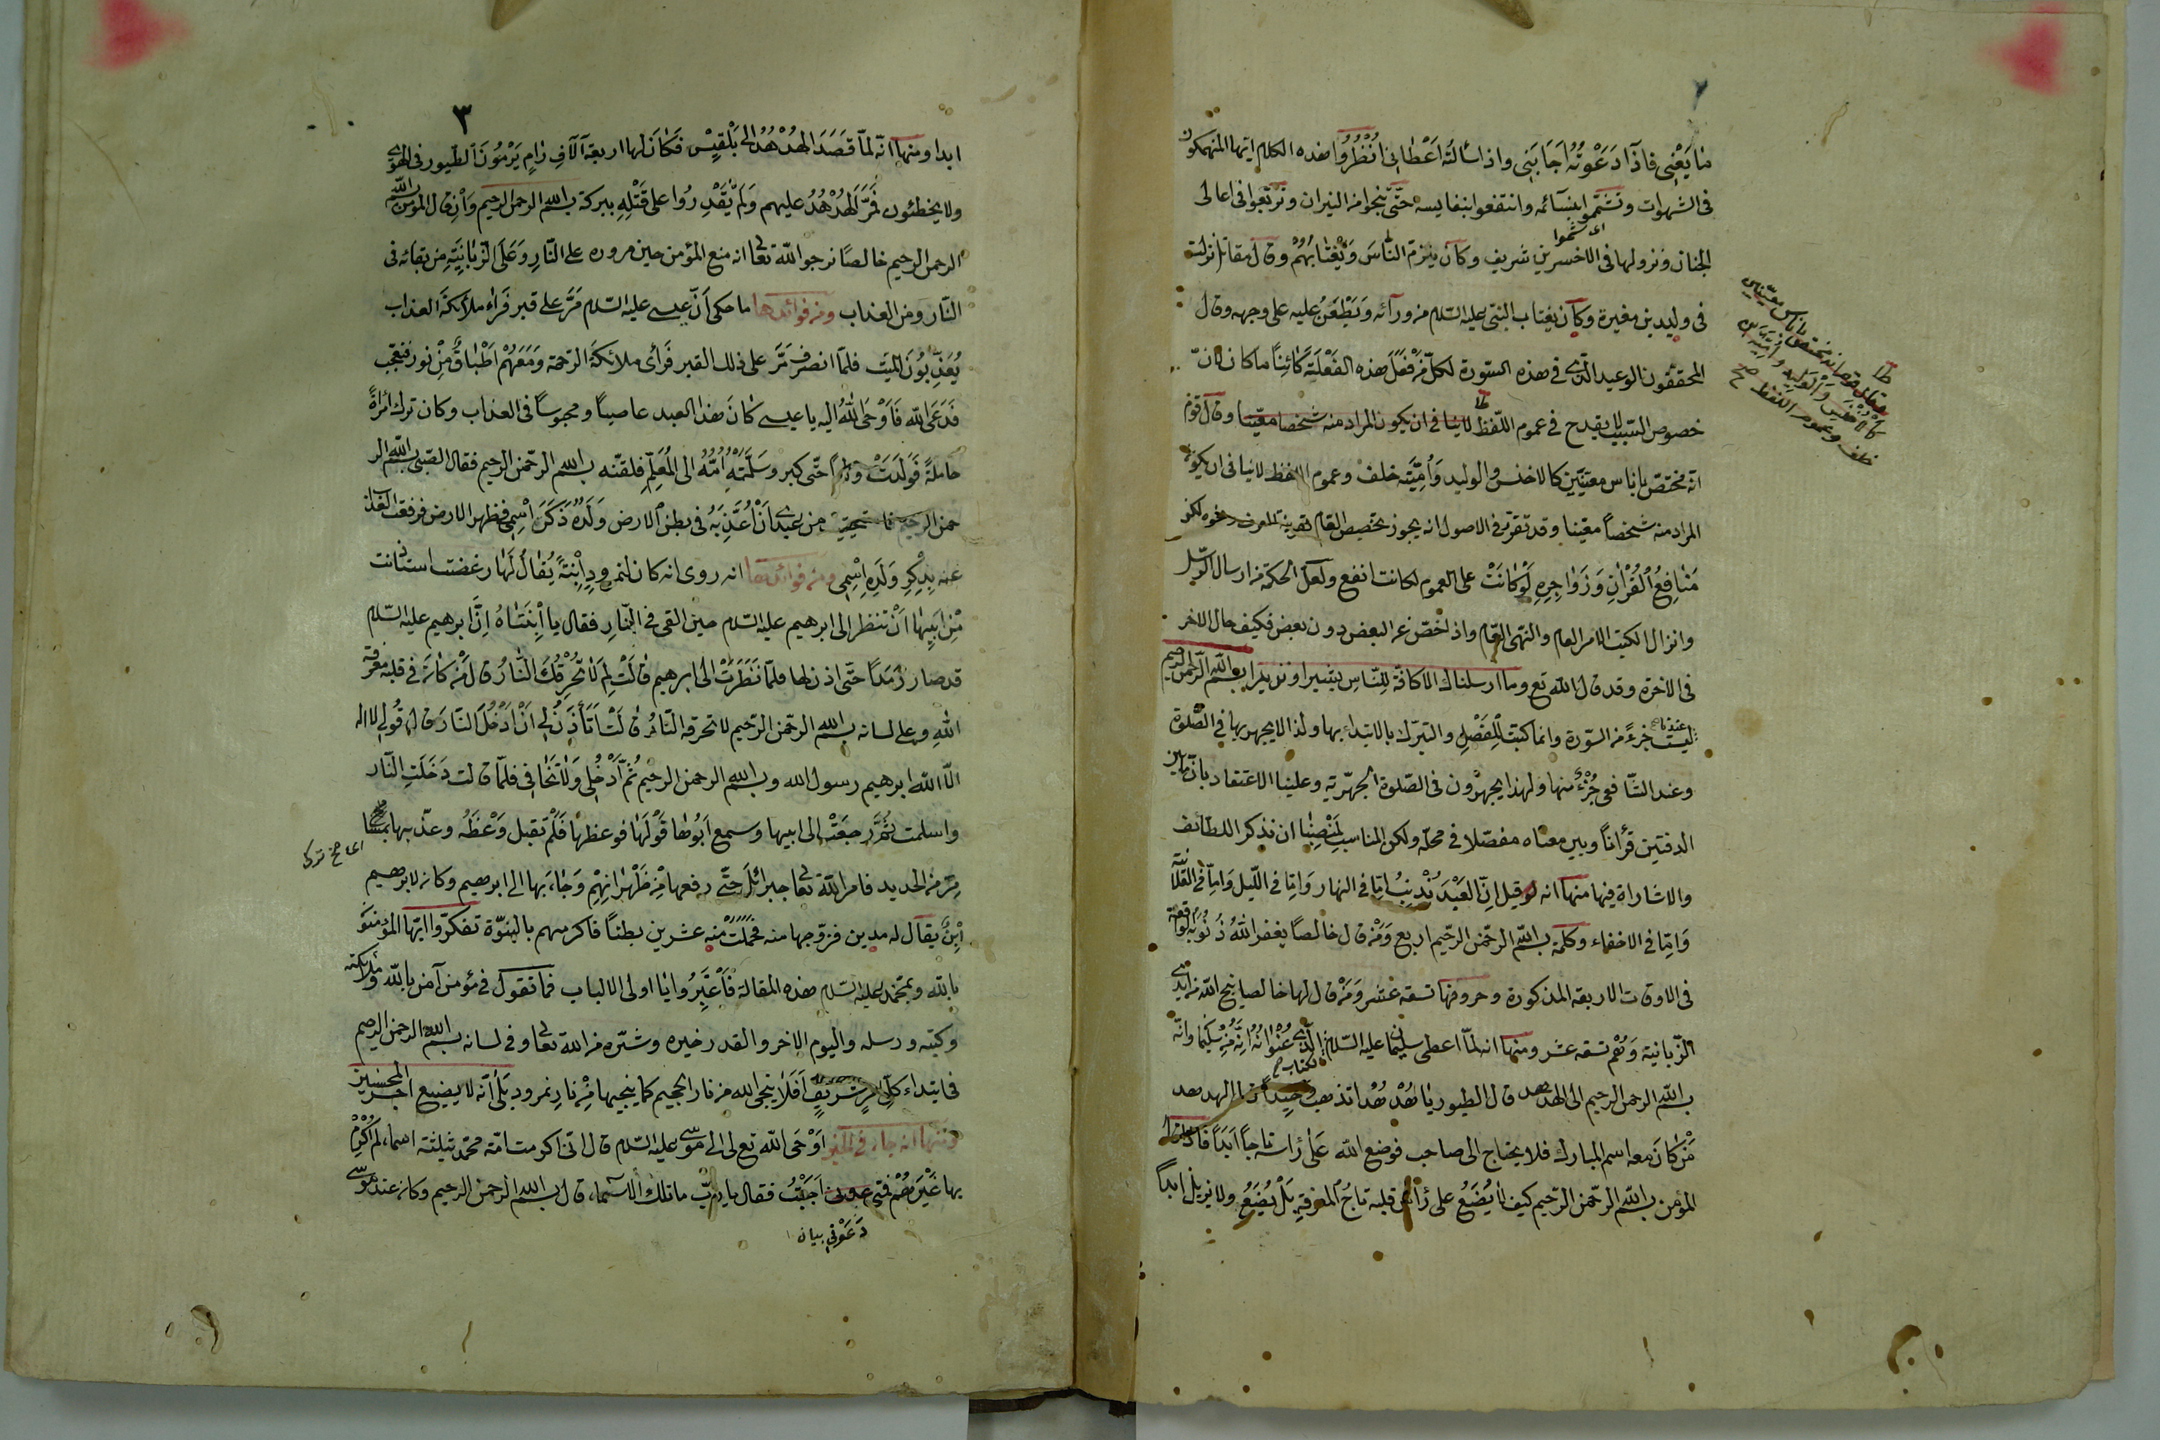 ما يَعْنِى فاذَا دَعَوْتُهُ اَجَابَنِى واذا سألتَه اَعْطانِى اُنْظُرُوا هذه الكلام ايّها المنهمكون
فى الشهوات وتَشَمَّمُوا بنسائمه وانتفعوا بنفايسه حَتَّى تنجوا من النيران وترتعوا فى اعالى
اى شموا
الجنان ونزولها فى الاخنس بن شريق وكان يلزم الناسَ وَيَغْتَابُهُمْ وقال مقاتل نزلت
فى وليد بن مغيرة وكان يغتاب النبى عليه السّلام من ورآئه وَيَطْعَنُ عليه على وجهه وقال
المحققون الوعيد الّذى فى هذه السّورة لكلّ مَنْ فَعَلَ هذه الفَعْلَةَ كَائِنًا ما كان لانّ
خصوص السّبب لا يقدح فى عموم اللّفظ لا ينافى ان يكون المراد منه شخصا معيّنا وقال قوم
انّه مختصّ باناس معيّنين كالاخنس والوليد وَاُمَيَّة بن خلف وعموم اللفظ لا ينافى ان يكون
المراد منه شخصاً معيّنا وقد تقرّر فى الاصول انه يجوز تخصيص العام بقرينة العرف ونحوه لكن
مَنَافِعُ الْقُرْاٰنِ وَزَوَاجِرِهِ لَوْ كَانَتْ على العموم لكانت انفع ولعلّ الحكمة من ارسال الرّسل
وانزال الكتب الامر العام والنّهى العّام واذا خصّ عن البعض دون بعض فكيف حال الاخر
فى الآخرة وقد قال الله تع وما ارسلناك الا كافّة للنّاس بشيرا ونذيرا بسم الله الرّحمن الرّحيم
ليست عندنا جزءً من السّورة وانما كتبت لِلْفَصْلِ والتبرّك بالابتداء بها ولذا لا يجهر بها فى الصّلوة
وعند الشّافعى جُزْءٌ منها ولهذا يجهرون فى الصّلوة الجهرّية وعلينا الاعتقاد بانّ ما بين
الدفتين قرأناً وبين معناه مفصّلا فى محلّه ولكن المناسب لِمَنْصِبِنا ان نذكر اللطائف
والاشاراة فيها منها انه لو قيل اِنّ العَبْدَ يُذْنِبُ امّا فى النهار وَامّا فى اللّيل وَامّا فى العَلَانِيَّة
وَامّا فى الاخفاء وكلمة بسم اللّه الرحّمن الرّحيم اربع وَمَنْ قال خالصًا يغفر اللهُ ذُنُوبَهُ الْوَاقِعَةَ
فى الاوقات الاربعة المذكورة وحروفها تسعة عشر وَمَنْ قال لها خالصا ينج الله من ايدى
الزّبانية وَهُمْ تسعة عشر ومنها انه لمّا اعطى سليمان عليه السّلام الكتاب الّذى عُنْوَانُهُ اِنَّهُ مِنْ سُلَيْمَانَ وانّه
بسم اللّه الرحمن الرحيم الى الهدهد قال الطيور يا هُدْهُدْ اتذهب وحيداً قال الهدهد
مَنْ كَانَ معه اسم المبارك فلا يحتاج الى صاحب فوضع الله عَلَى رَاسه تاجاً اَبَدًا فاذا قال
المؤمن بسم اللّه الرحّمن الرّحيم كيف لا يُضَعُ على رَأسِ قلبه تاجُ المعرفةِ بَلْ يُضَعُ ولا يزيل ابداً
٣
ابدا ومنها انّه لمّا قَصَدَ الهُدْهُدُ الى بَلْقِيْسَ فَكَانَ لها اربعة آلآفِ رَامٍ يَرْمُونَ الطّيور فى الهوى
ولا يخطئون فَمَرَّ الهُدْهُدُ عليهم وَلَمْ يَقْدِرُوا على قَتْلِهِ ببركة بسم الله الرحمن الرحيم وَاِنْ قال المؤمن بسم الله
الرحمن الرحيم خالصًا نرجوا اللّه تعالى انه منع المؤمن حين مروره على النّارِ وَعَلَى الزّبَانِيَّةِ من بقائه فى
النّار ومن العذاب ومن فوائدها ما حكى اَنّ عيسى عليه السّلام مَرَّ على قبر فَرَاى ملائكةَ العذاب
يُعَذّبُونَ الميّت فلمّا انصرف مَرَّ على ذلك القبر فَرَأى ملائكةَ الرّحمة وَمَعَهُمْ اَطْبَاقٌ مِنْ نور فتعجّب
فَدَعَى اللّه فَاَوْحَى اللهُ اليه يا عيسى كانَ هذا العبد عاصيًا ومحبوسًا فى العذاب وكان ترك امْرَاةً
حاملةً فَوَلَدَتْ ولداً حتّى كبر وسَلّمَتْهُ اُمُّهُ الى المُعَلِّمِ فلقّنه بسم الله الرحّمن الرّحيم فقال الصّبى بسم الله الر
حمن الرحيم فاستحييت من عبدى اَنْ اُعَذِّبَهُ فى بطن الارض وَلَدُهُ ذَكَرَ اسْمِى فظهر الارض فرفعت العذاب
عنه بِذِكْرِ وَلَدِهِ اِسْمِى ومن فوائدها انه روى انه كان لنمرود اِبْنَةً يُقَالُ لَهَا رغضت استأذنت
مِنْ اَبِيهَا اَنْ تنظر الى ابرهيم عليه السّلام حين القى فى النّارِ فقال يا اِبْنَتَاهُ اِنَّ ابرهيم عليه السّلام
قد صار رَمَدًا حَتَّى اذن لها فلمّا نَظَرَتْ الى ابرهيم قالَتْ لِمَ لا تُحْرِقُكَ النَّارُ قال مَنْ كانَ فى قلبه معرفة
اللهِ وعلى لسانه بسم اللّه الرحّمن الرّحيم لا تحرقه النّارُ قالَتْ اَتَأذَنُ لِى اَنْ اَدْخُلَ النّارَ قال قُولِى لا اله
الاّ اللّه ابرهيم رسول الله وبسم الله الرحمن الرحيم ثُمَّ اُدْخُلِى وَلا تَخَافِى فلمّا قالت دَخَلَتِ النّار
واسلمت ثُمَّ رجعَتْ الى ابيها وسمع اَبُوهَا قَوْلَهَا فوعظها فَلَمْ تقبل وَعْظَهُ وعذّبها بمسْمَارٍ
مِنْ الحديد فامر اللّه تعالى جبرائلَ حَتّى رفعها مِنْ ظَهْرانِيهِمْ وَجَاءَ بها الى ابرهيم وكان لابرهيم
اِبْنٌ يقال له مدين فزوّجها منه فحَمَلَتْ منه عشرين بطنًا فاكرمهم بالنبوّة تفكرّوا ايّها المؤمنون
باللّه وبمحمّد عليه السّلام هذه المقالة فَاعْتَبِرُوا يا اولى الالباب فما تقول فى مؤمن آمن باللّه وملائكته
وكتبه ورسله واليوم الآخر والقدر خيره وشرّه من الله تعالى وفى لسانه بسم الله الرحمن الرحيم
فى ابتداء كلّ امر شريفٍ اَفَلَا ينجى الله من نار الجحيم كما ينجيها مِنْ نارِ نمرود بَلَى انّه لا يضيع اجر المحسنين
ومنها انه جاء فى الخبر اَوْحَى اللّه تع لى الى موسى عليه السّلام قال انّى اكرمت امّة محمّد بثلثة اسماء لَمْ اُكْرِمْ
بها غَيْرَهُمْ فمتى دعونى اَجَبْتُ فقال يا ربّ ما تلك الاسْماء قال بسم الله الرحمن الرحيم وكان عند موسى
دَعَوْنِى بيان